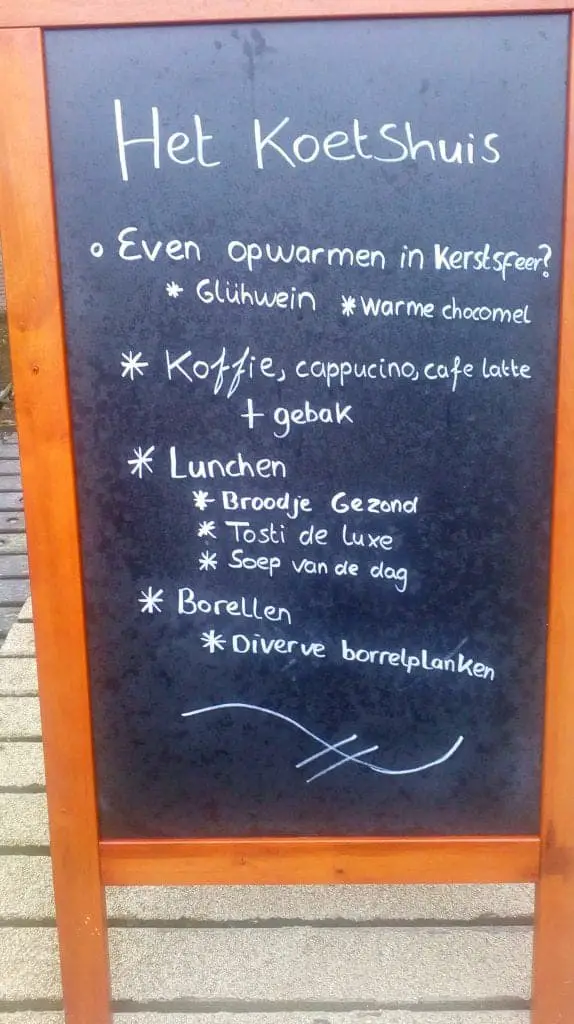 Het Koetshuis
° Even opwarmen in Kerstsfeer?
* Glühwein * Warme chocomel
* Koffie, cappucino, cafe latte
+ gebak
* Lunchen
* Broodje Gezond
* Tosti de luxe
* Soep van de dag
* Borellen
* Diverve borrelplanken